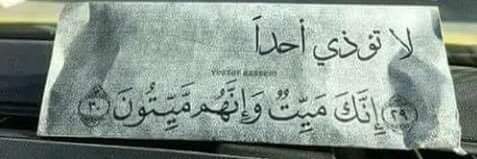 لا تؤذي أحداً
Yossof kassem
﴿٢٩﴾ إِنَّكَ مَيِّتٌ وَإِنَّهُم مَّيِّتُونَ ﴿٣٠﴾